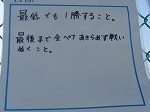 最低でも1勝すること。
最後まで全べてあきらめず戦い
ぬくこと。